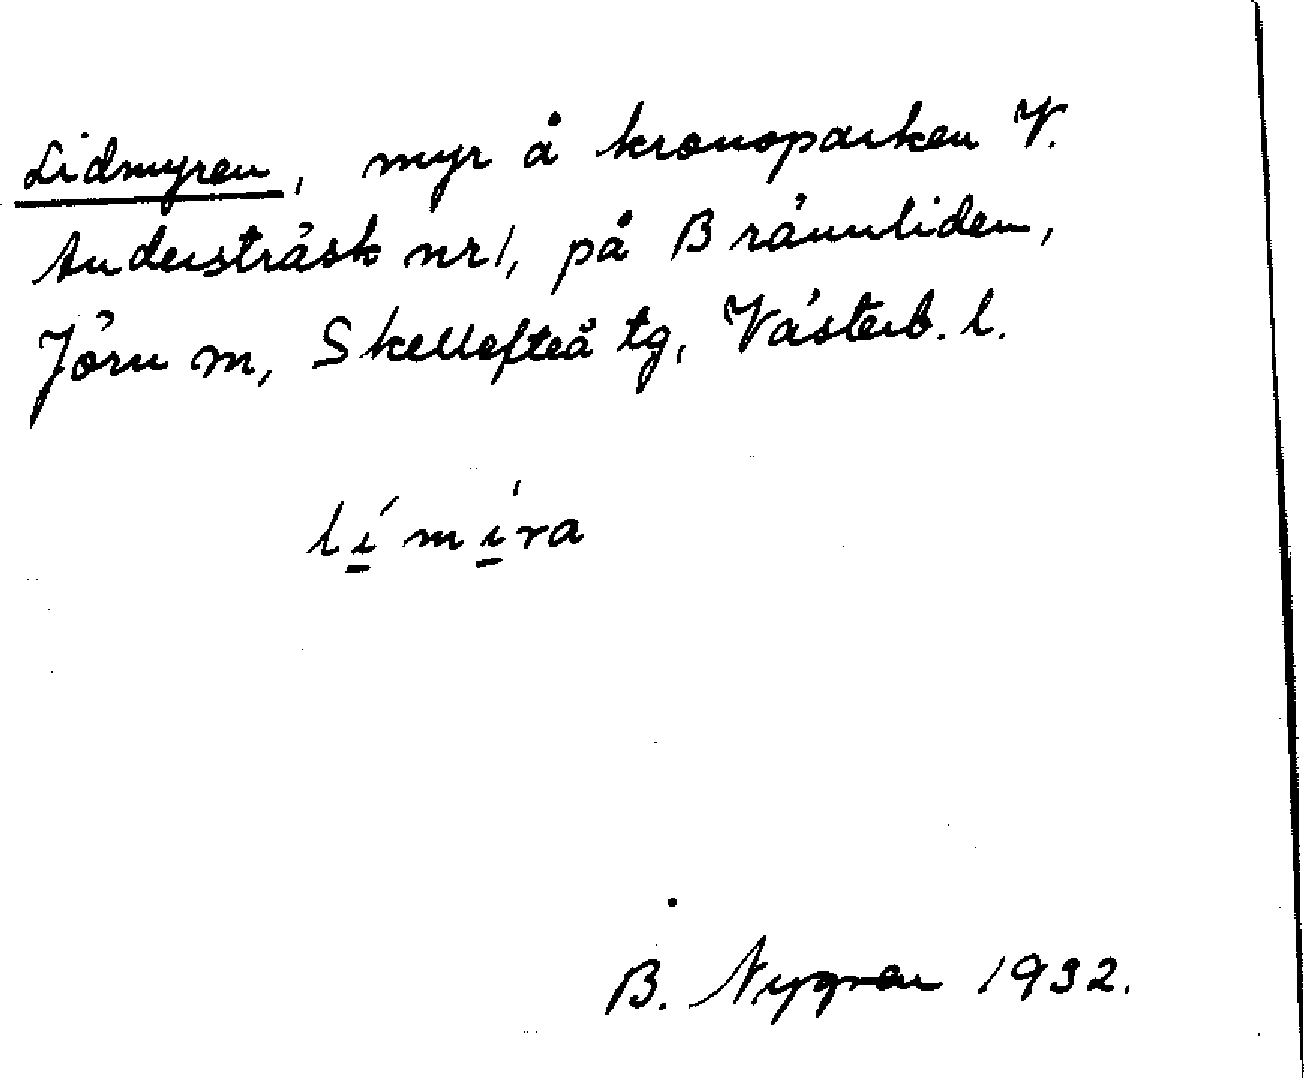 Lidmyren, myr å kronoparken V.
Andersträsk nr 1, på Brännliden,
Jörn m, Skellefteå tg, Västerb. l.
lí̱ mì̱ra
B. Nygren 1932.